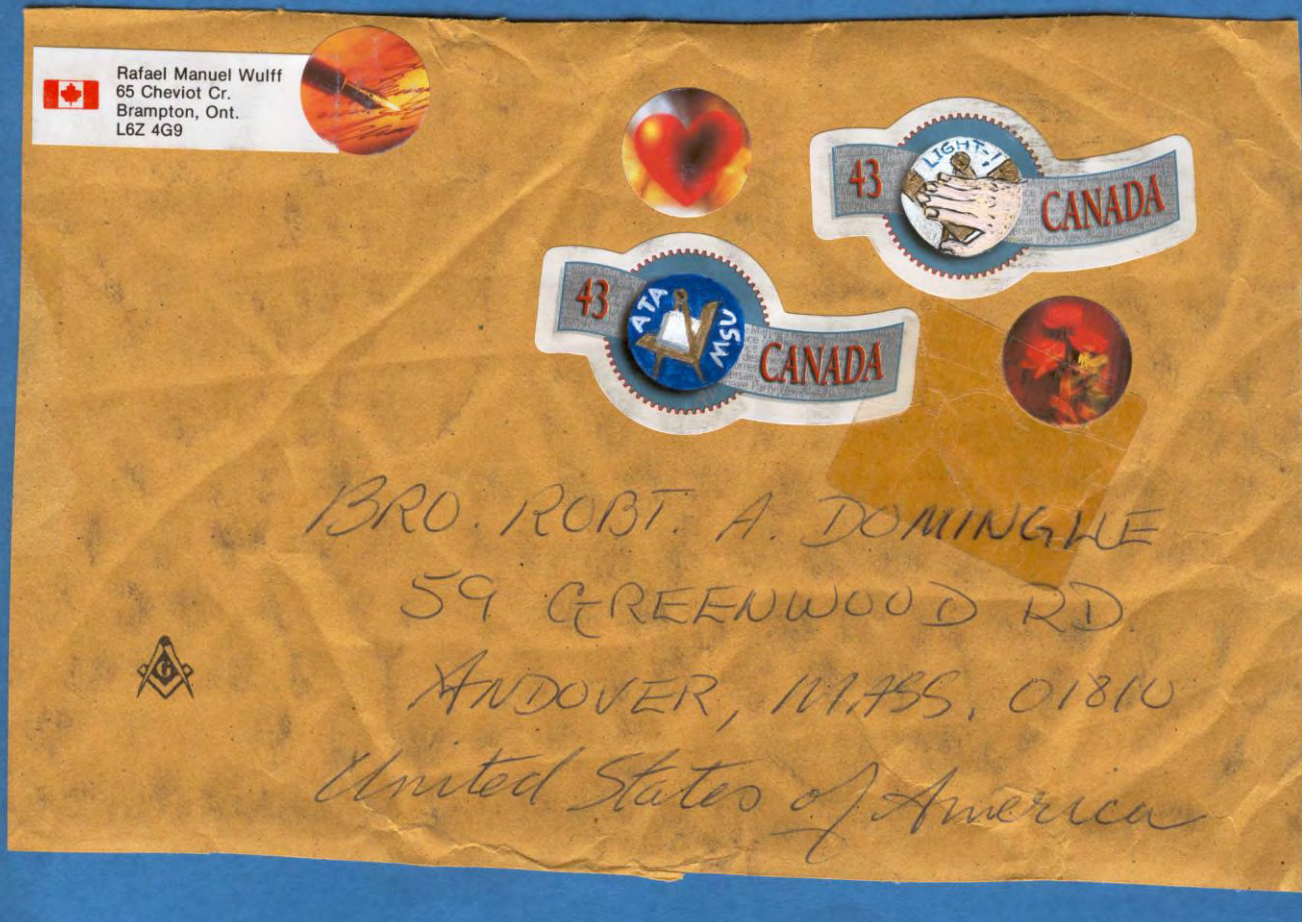 Rafael Manuel Wulff
65 Cheviot Cr.
Brampton, Ont.
L6Z 4G9
43
LIGHT-!
CANADA
43
ATA
NSW
CANADA
BRO. ROBT. A. DOMINGUE
59 GREENWOOD RD.
ANDOVER, MASS. 01810
United States of America
G